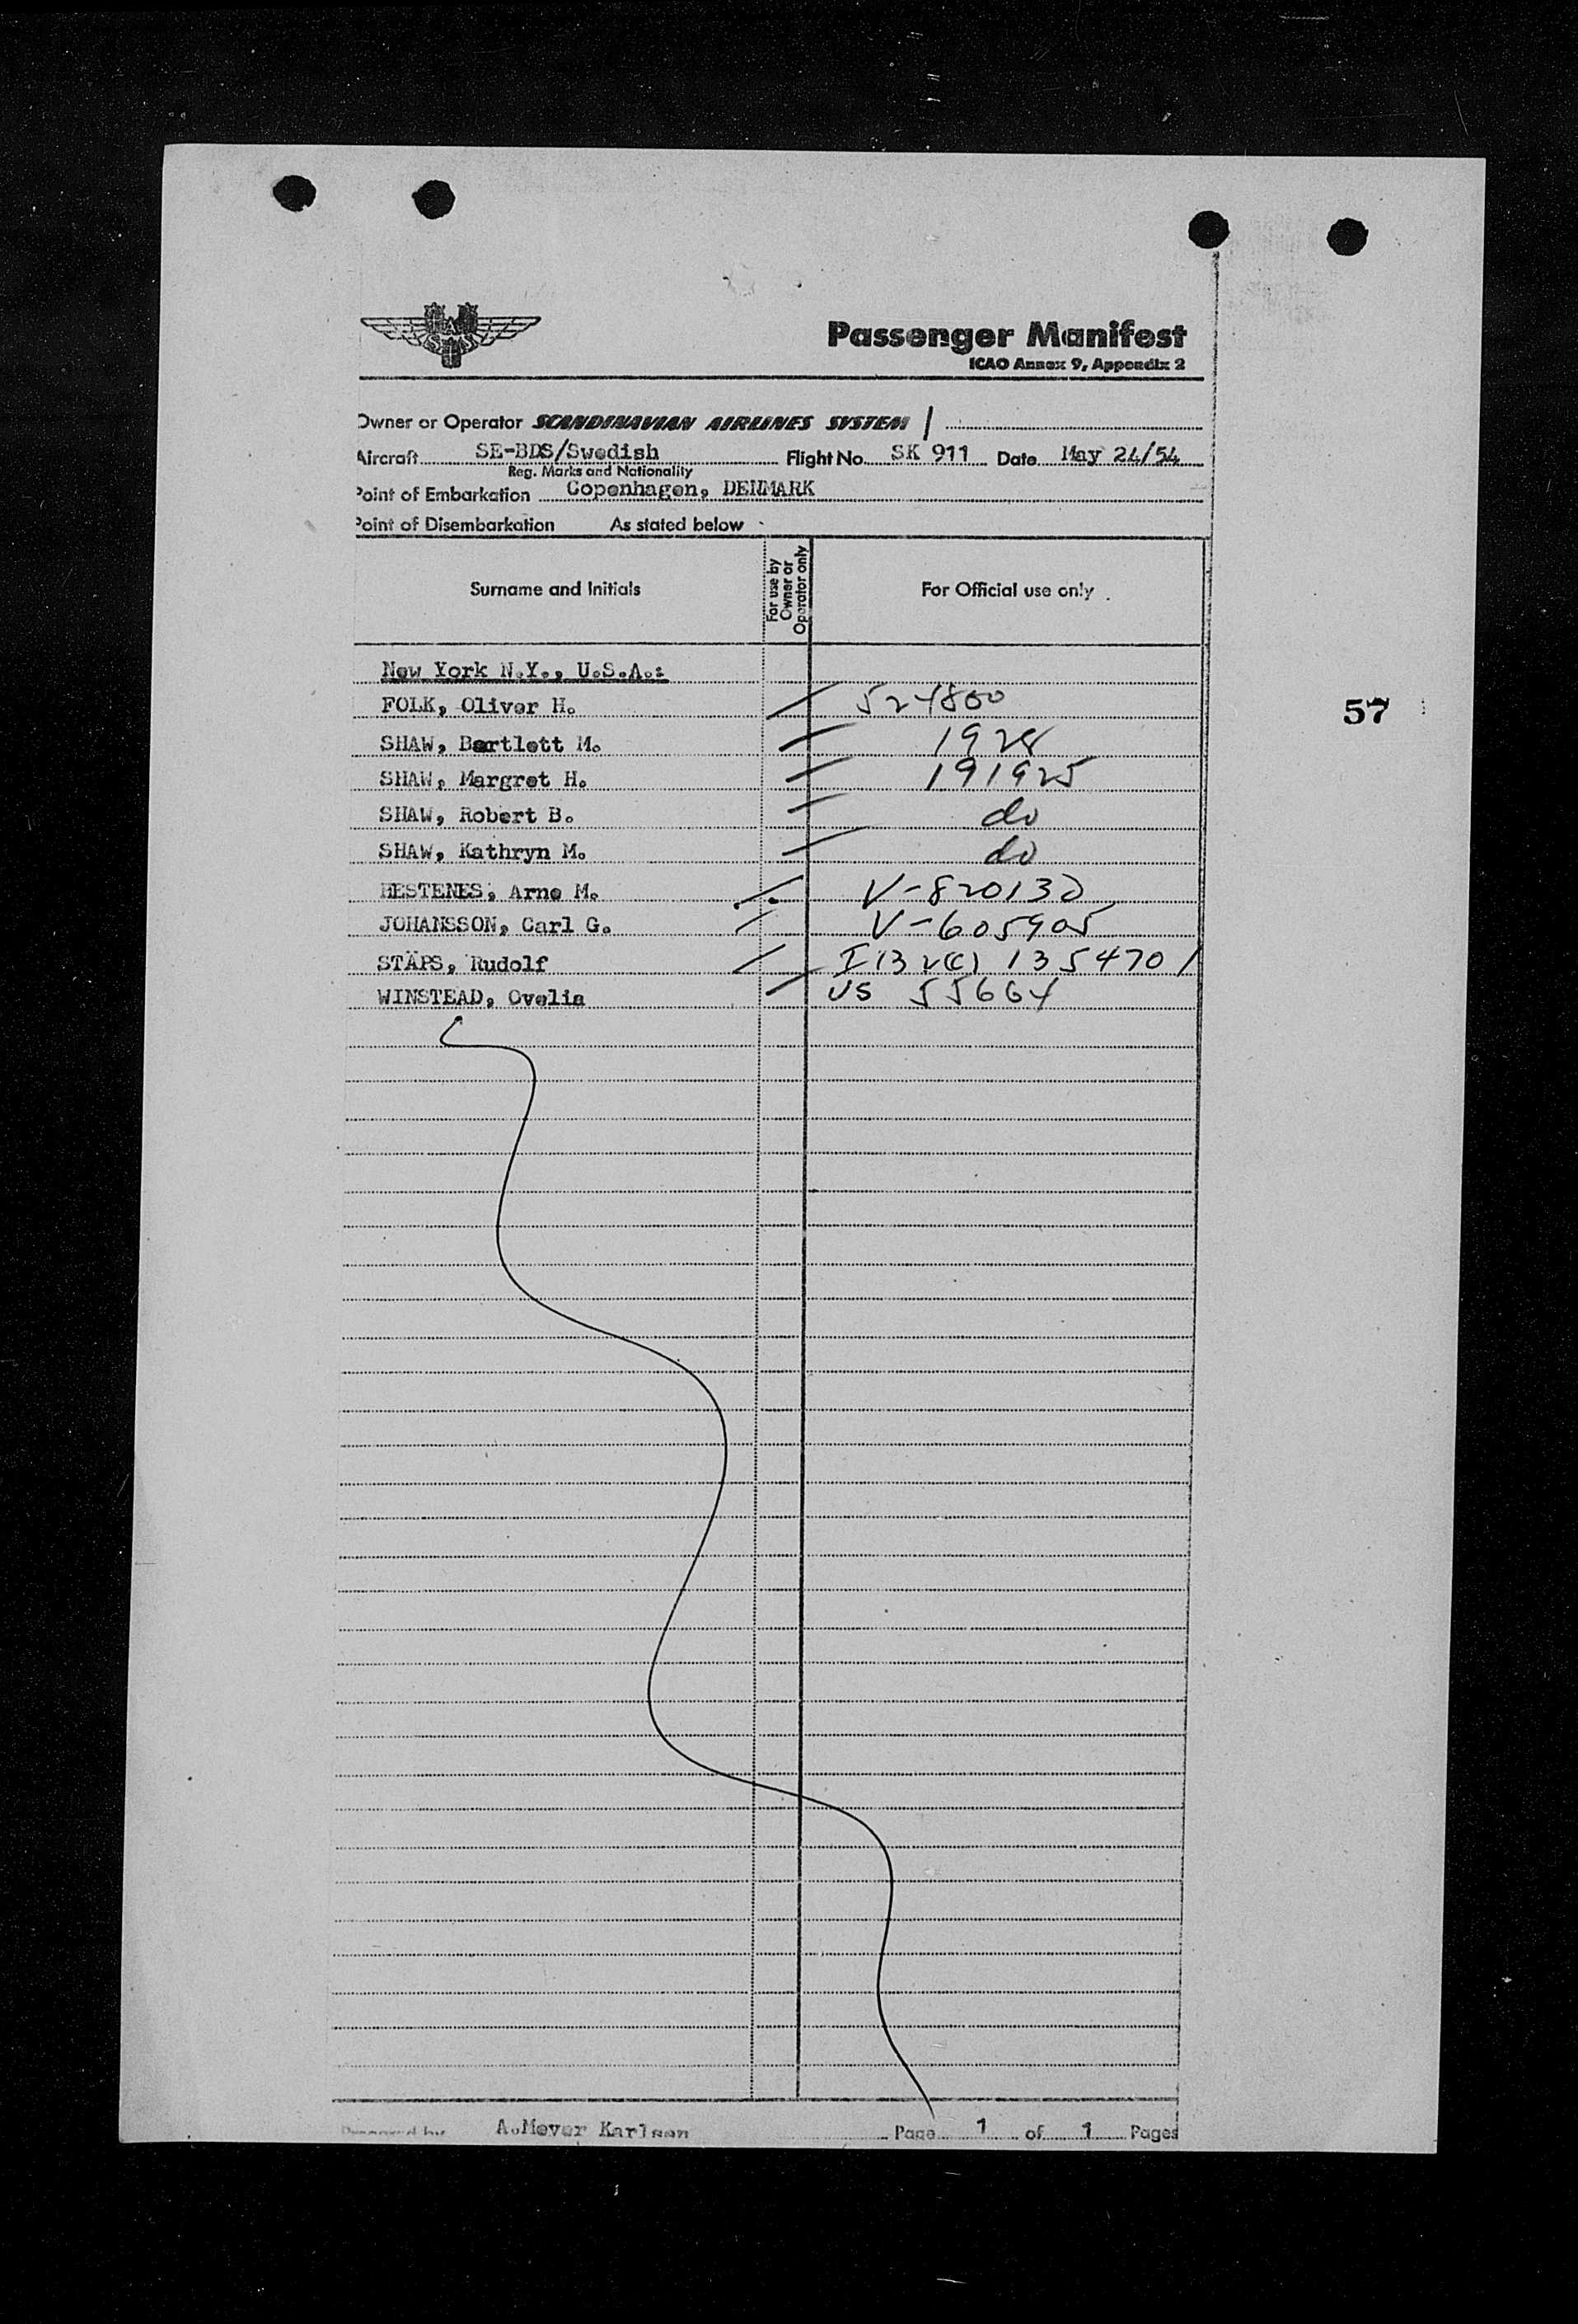 SAS
Passenger Manifest
ICAO Annex 9, Appendix 2
Owner or Operator SCANDINAVIAN AIRLINES SYSTEM
Aircraft SE-BDS/Swedish Flight No. SK 911 Date May 24/54
Reg. Marks and Nationality
Point of Embarkation Copenhagen, DENMARK
Point of Disembarkation As stated below
Surname and Initials For use by Owner or Operator only For Official use only
New York N.Y., U.S.A.:
FOLK, Oliver H. 524800
57
SHAW, Bartlett M. 1928
SHAW, Margret H. 191925
SHAW, Robert B. do
SHAW, Kathryn M. do
HESTENES, Arne M. V-820130
JOHANSSON, Carl G. V-605905
STÄPS, Rudolf I 132(c) 1354701
WINSTEAD, Ovelia US 55664
Prepared by A.Meyer Karlsen Page 1 of 1 Pages